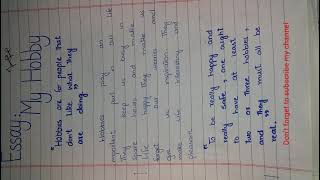 Essay:
My Hobby
"Hobbies are for people that
don't like what they
are doing"
Hobbies play an
important part in our life
They keep us busy in
spare hours and make
life happy. They make us
forget our worries and
give us inspiration. They
make life interesting and
pleasant.
"To be really happy and
really safe, one ought
to have at least
two or three hobbies,
and they must all be
real."
Don't forget to subscribe my channel